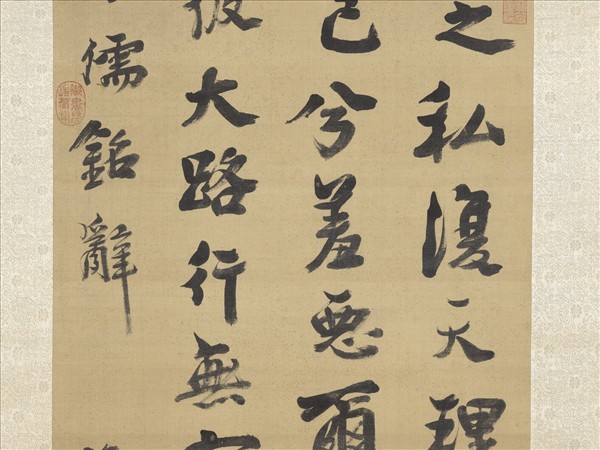 之私復天理
己兮羞惡爾
彼大路行無
儒銘辭